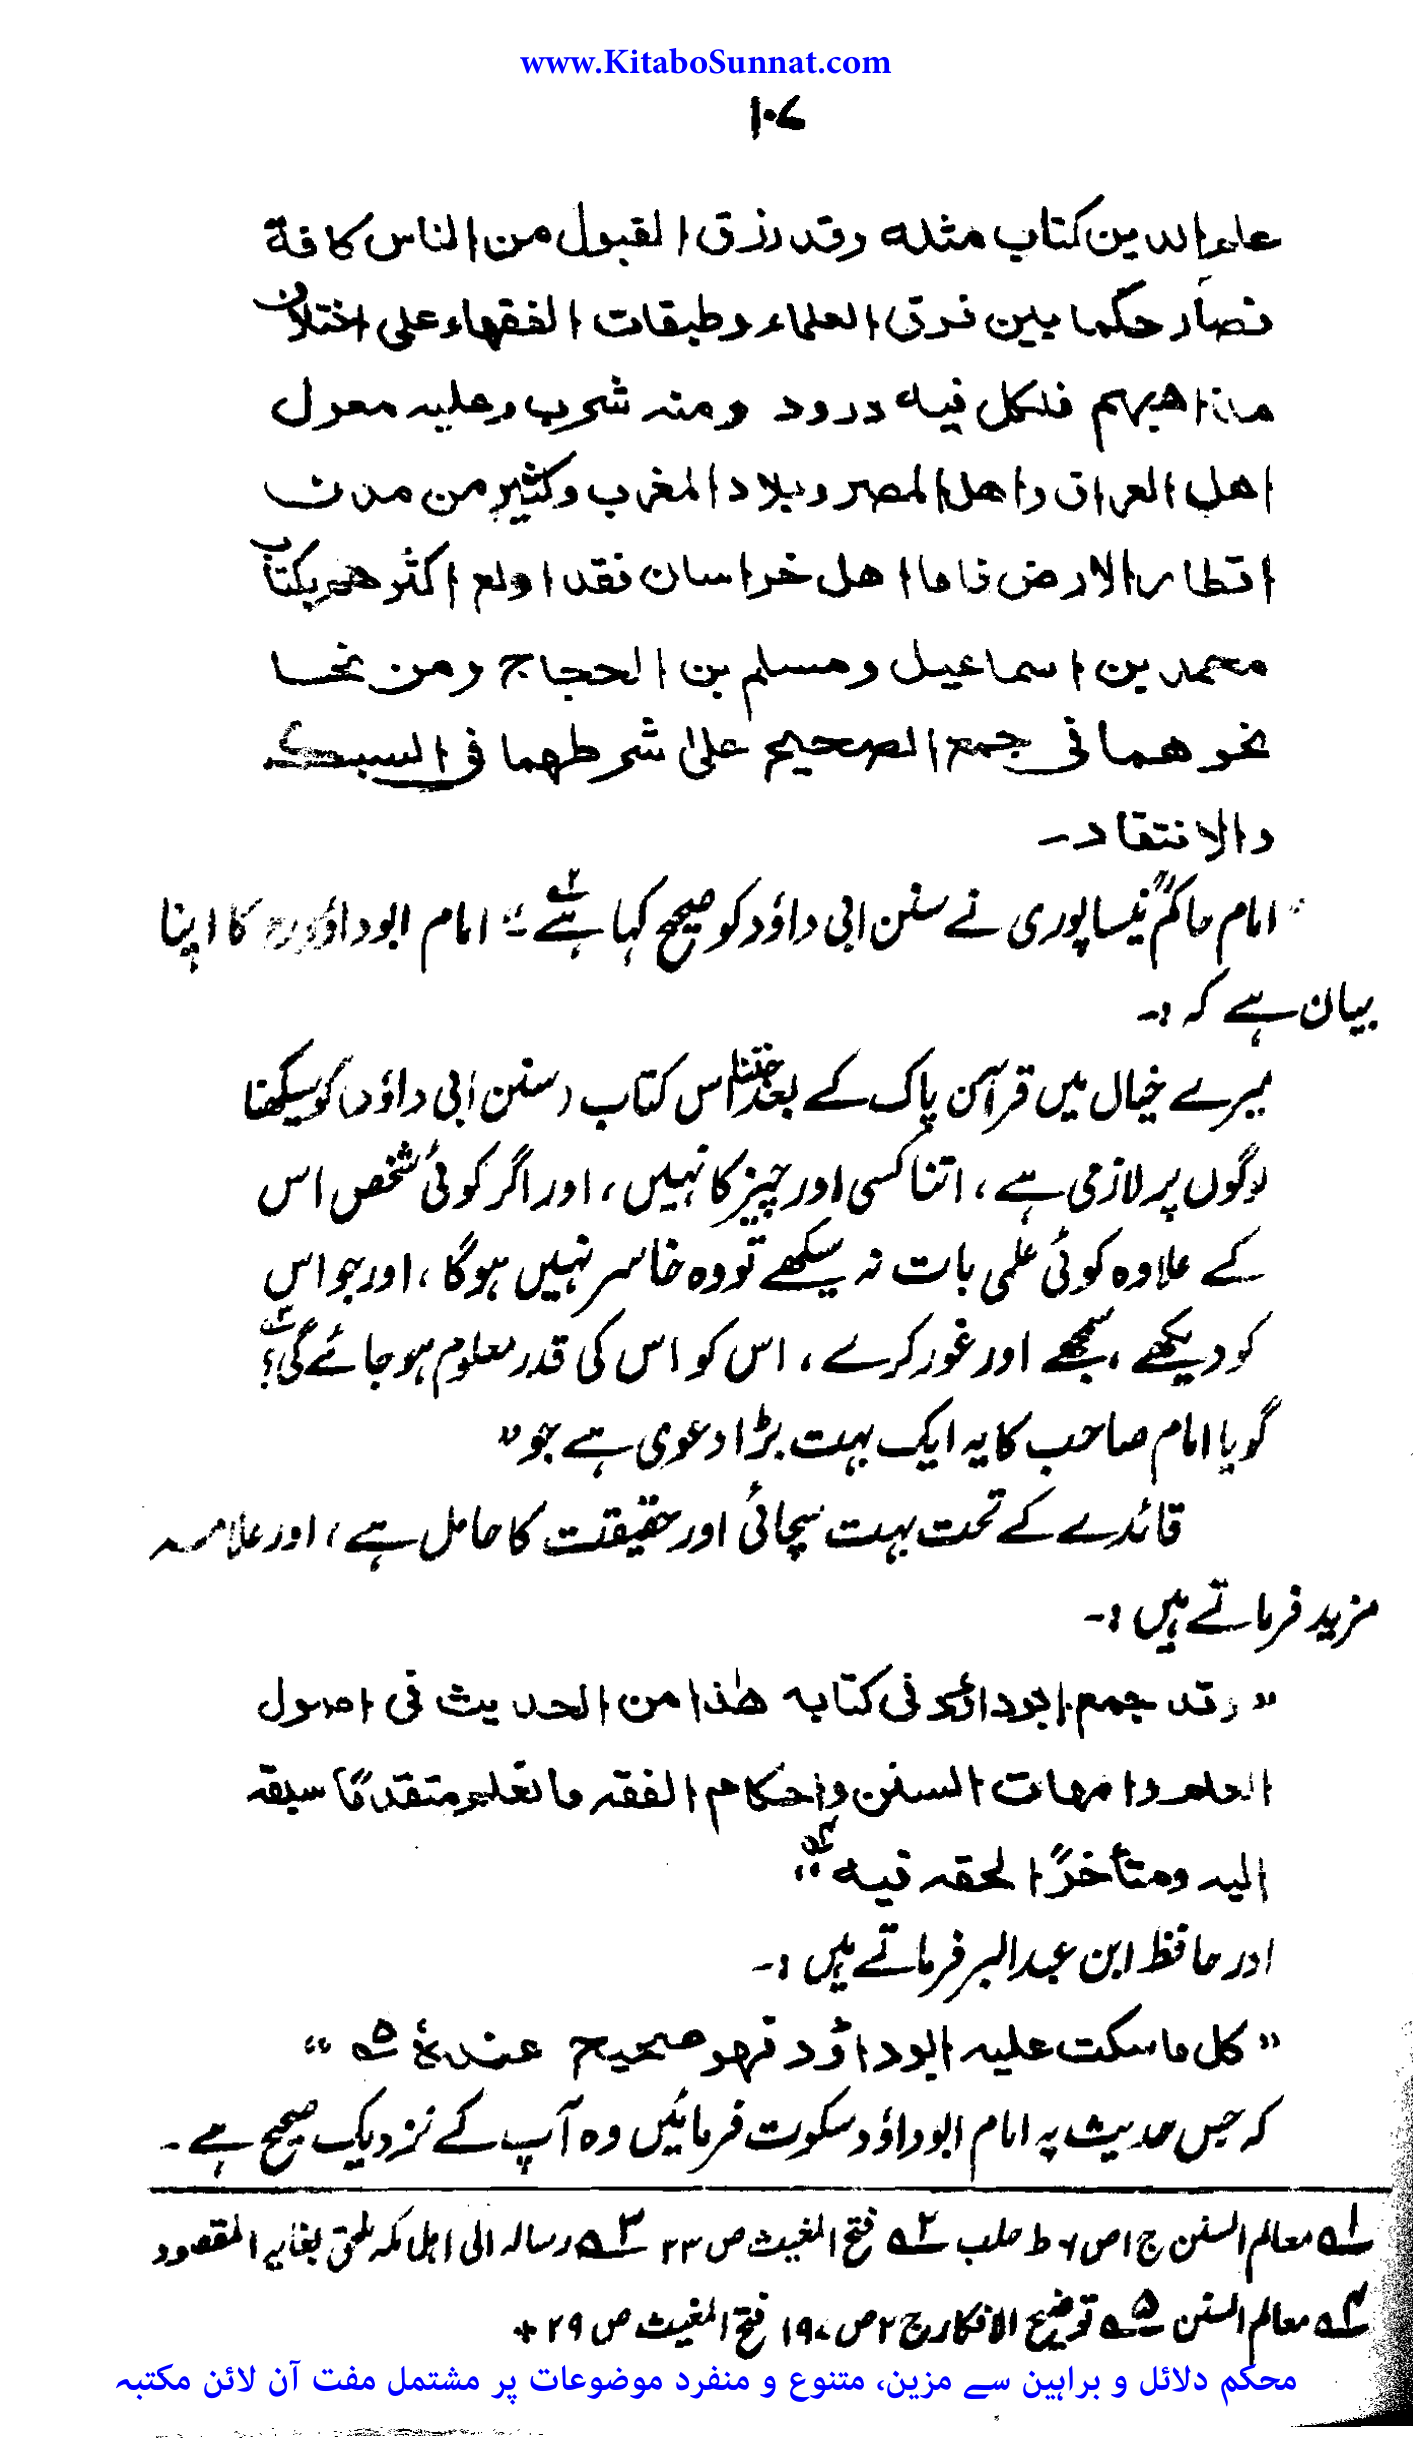 www.KitaboSunnat.com
۱۰۷
علم الدین کتاب مثله وقد رزق القبول من الناس کافة
فصار حکما بین فرق العلماء وطبقات الفقهاء علی اختلاف
مذاهبهم فلکل فیه ورود ومنه شرب وعلیه معول
اهل العراق واهل المصر وبلاد المغرب وکثیر من مدن
اقطار الارض فاما اهل خراسان فقد اولع اکثرهم بکتاب
محمد بن اسماعیل ومسلم بن الحجاج ومن نحا
نحوهما فی جمع الصحیح علیٰ شرطهما فی السبک
والانتقاد۔
"امام حاکمؒ نیساپوری نے سنن ابی داؤد کو صحیح کہا ہے ۲؎ ۔" امام ابوداؤدؒ کا اپنا
بیان ہے کہ :۔
میرے خیال میں قرآن پاک کے بعد جتنا اس کتاب (سنن ابی داؤد) کو سیکھنا
لوگوں پر لازمی ہے، اتنا کسی اور چیز کا نہیں، اور اگر کوئی شخص اس
کے علاوہ کوئی علمی بات نہ سیکھے تو وہ خاسر نہیں ہوگا، اور جو اس
کو دیکھے، سمجھے اور غور کرے، اس کو اس کی قدر معلوم ہو جائے گی ۳؎
گویا امام صاحب کا یہ ایک بہت بڑا دعوی ہے جو"
قائدے کے تحت بہت سچائی اور حقیقت کا حامل ہے، اور علامہ
مزید فرماتے ہیں :۔
"وقد جمع ابوداؤد فی کتابه هٰذا من الحدیث فی اصول
العلم وامهات السنن واحکام الفقه ما نعلم متقدمًا سبقه
الیه ومتأخرًا لحقه فیه ۴؎"
اور حافظ ابن عبدالبر فرماتے ہیں :۔
"کل ما سکت علیه ابوداؤد فهو صحیح عندهٗ ۵؎"
کہ جس حدیث پہ امام ابوداؤد سکوت فرمائیں وہ آپ کے نزدیک صحیح ہے۔
۱؎ معالم السنن ج ۱ ص ۶ ط حلب ۲؎ فتح المغیث ص ۲۳ ۳؎ رسالہ الی اہل مکہ ملحق بغایۃ المقصود
۴؎ معالم السنن ۵؎ توضیح الافکار ج ۲ ص ۱۹۷ فتح المغیث ص ۲۹ +
محکم دلائل و براہین سے مزین، متنوع و منفرد موضوعات پر مشتمل مفت آن لائن مکتبہ